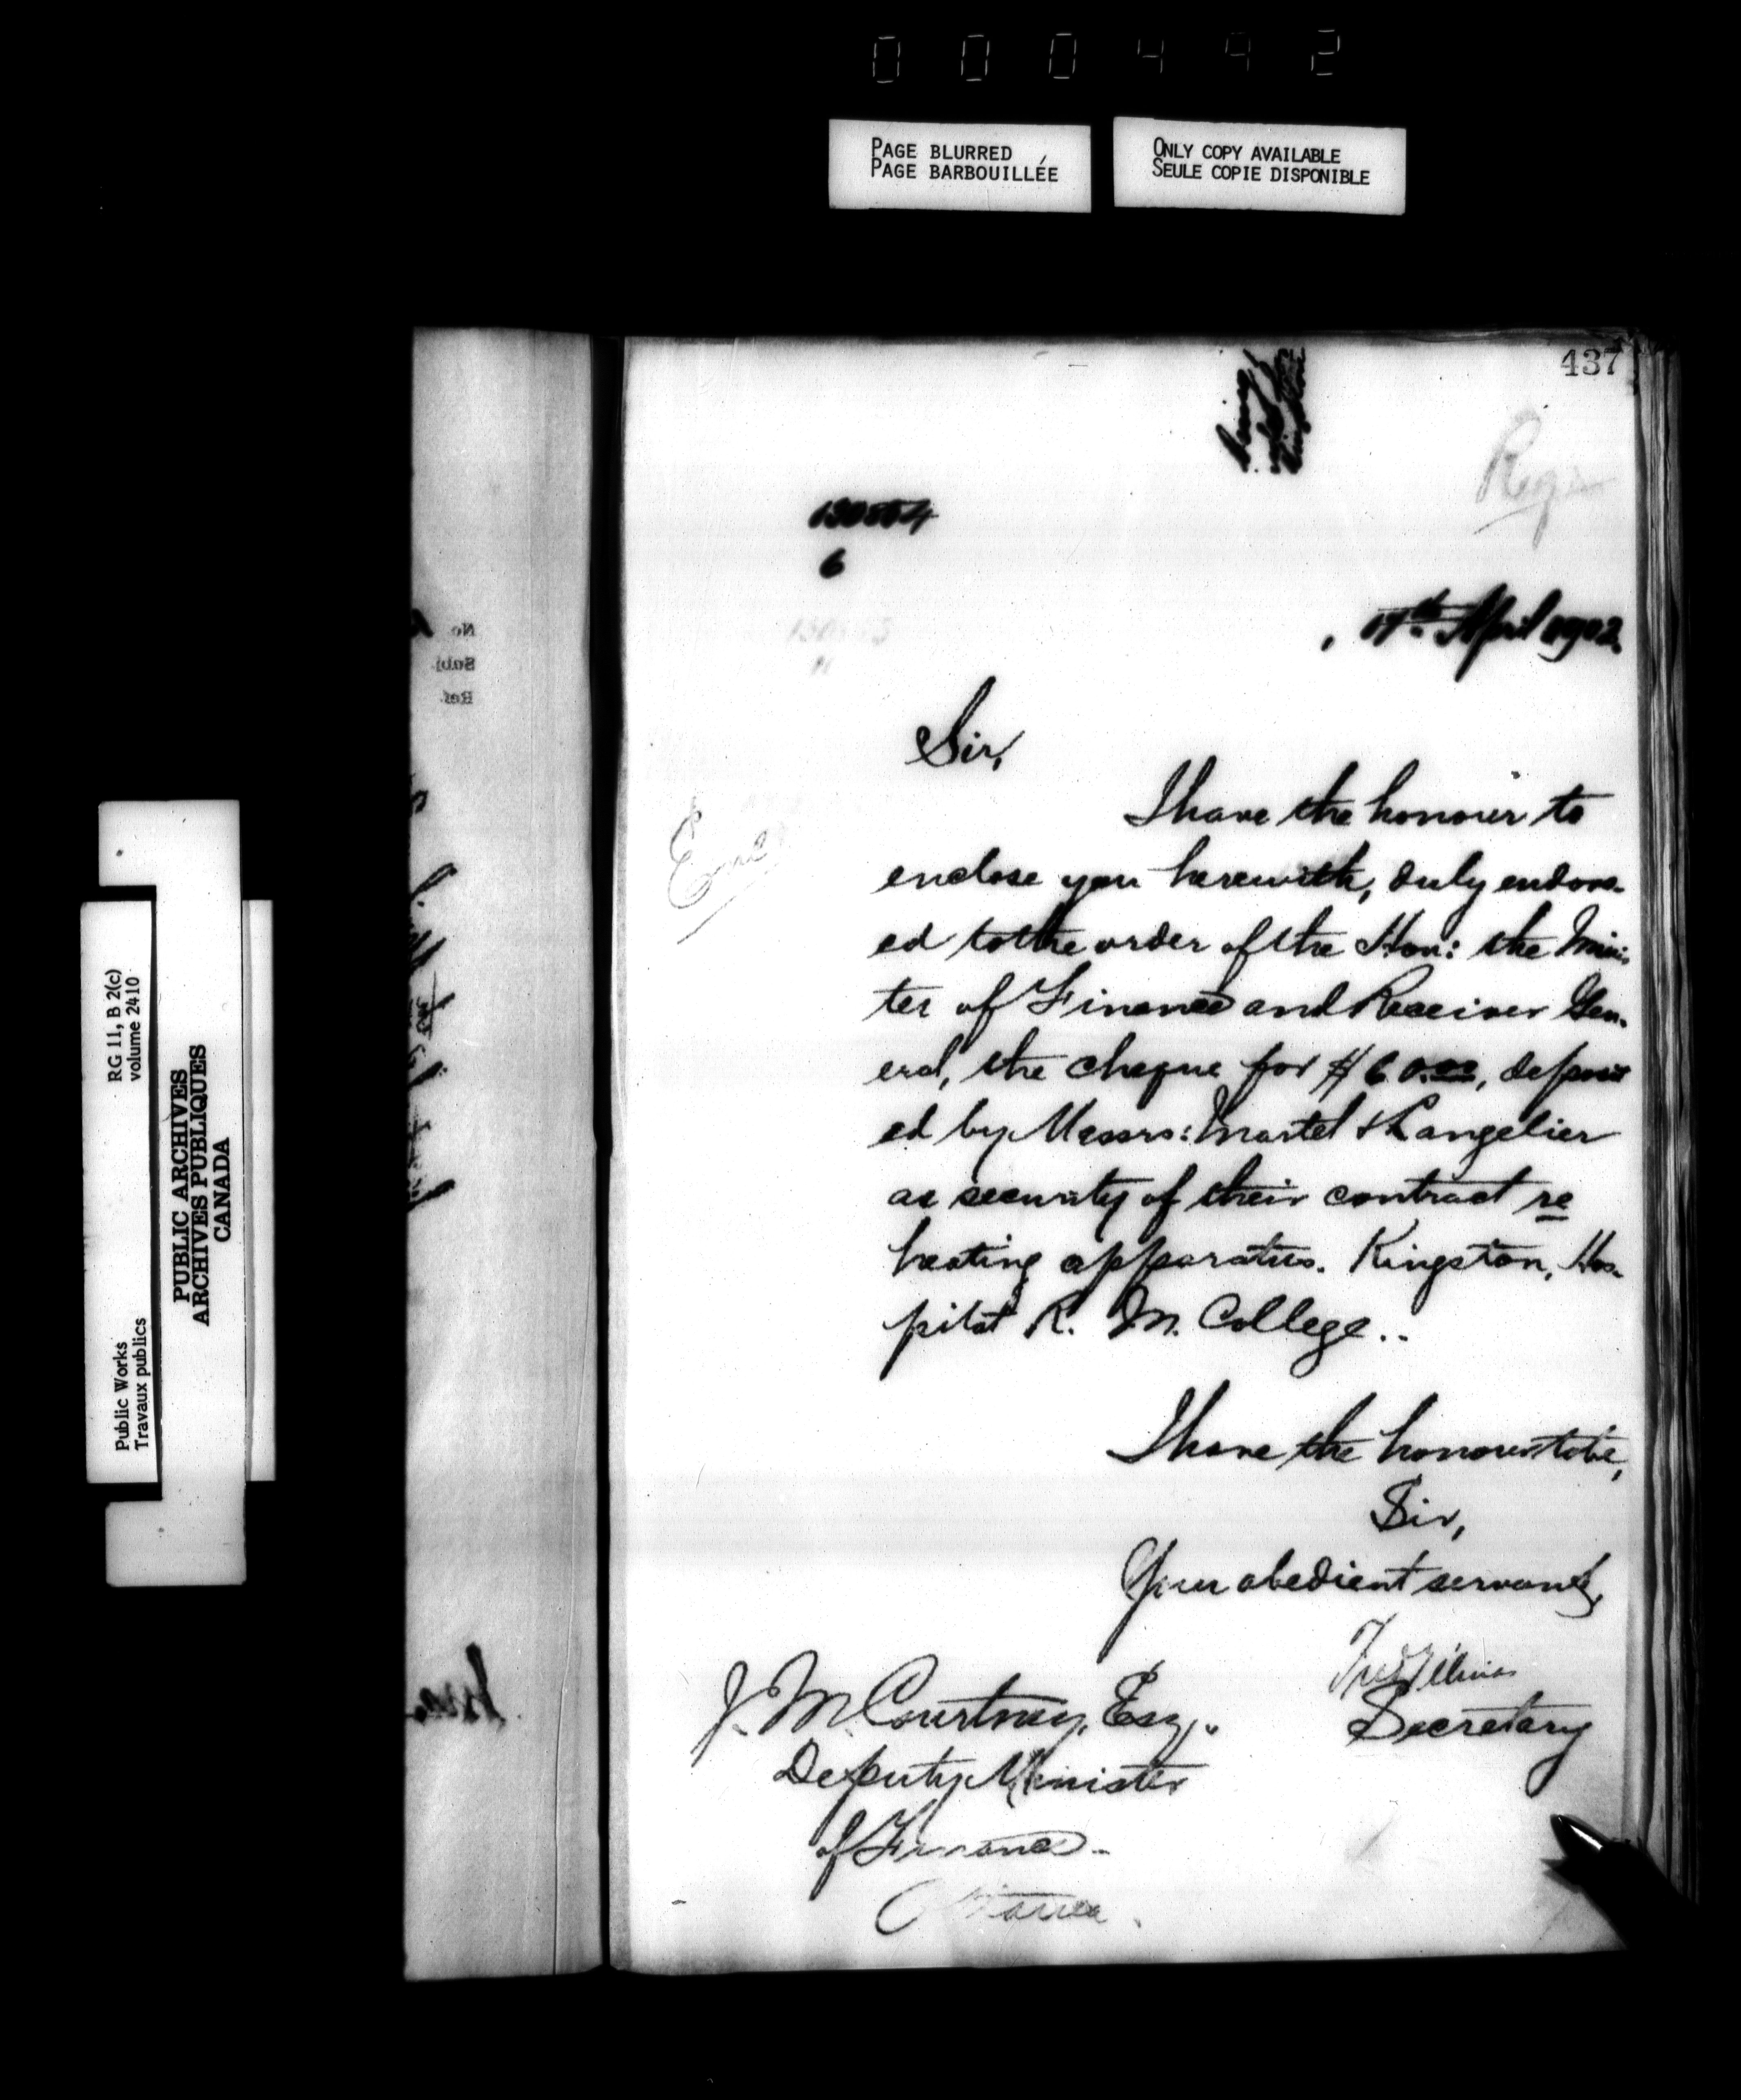 000442
PAGE BLURRED
PAGE BARBOUILLÉE
ONLY COPY AVAILABLE
SEULE COPIE DISPONIBLE
RG 11, B 2(c)
volume 2410
PUBLIC ARCHIVES
ARCHIVES PUBLIQUES
CANADA
Public Works
Travaux publics
No
Subj
Ref
437
6
17th April 1902.
Sir,
I have the honour to
enclose you herewith, duly endors-
ed to the order of the Hon: the Minis-
ter of Finance and Receiver Gen-
eral, the cheque for $60.00, deposit
ed by Messrs: Martel & Langelier
as security of their contract re
heating apparatus. Kingston, Hos-
pital R. M. College..
I have the honour to be,
Sir,
Your obedient servant,
Secretary
J. M. Courtney, Esq.
Deputy Minister
of Finance.
Ottawa.